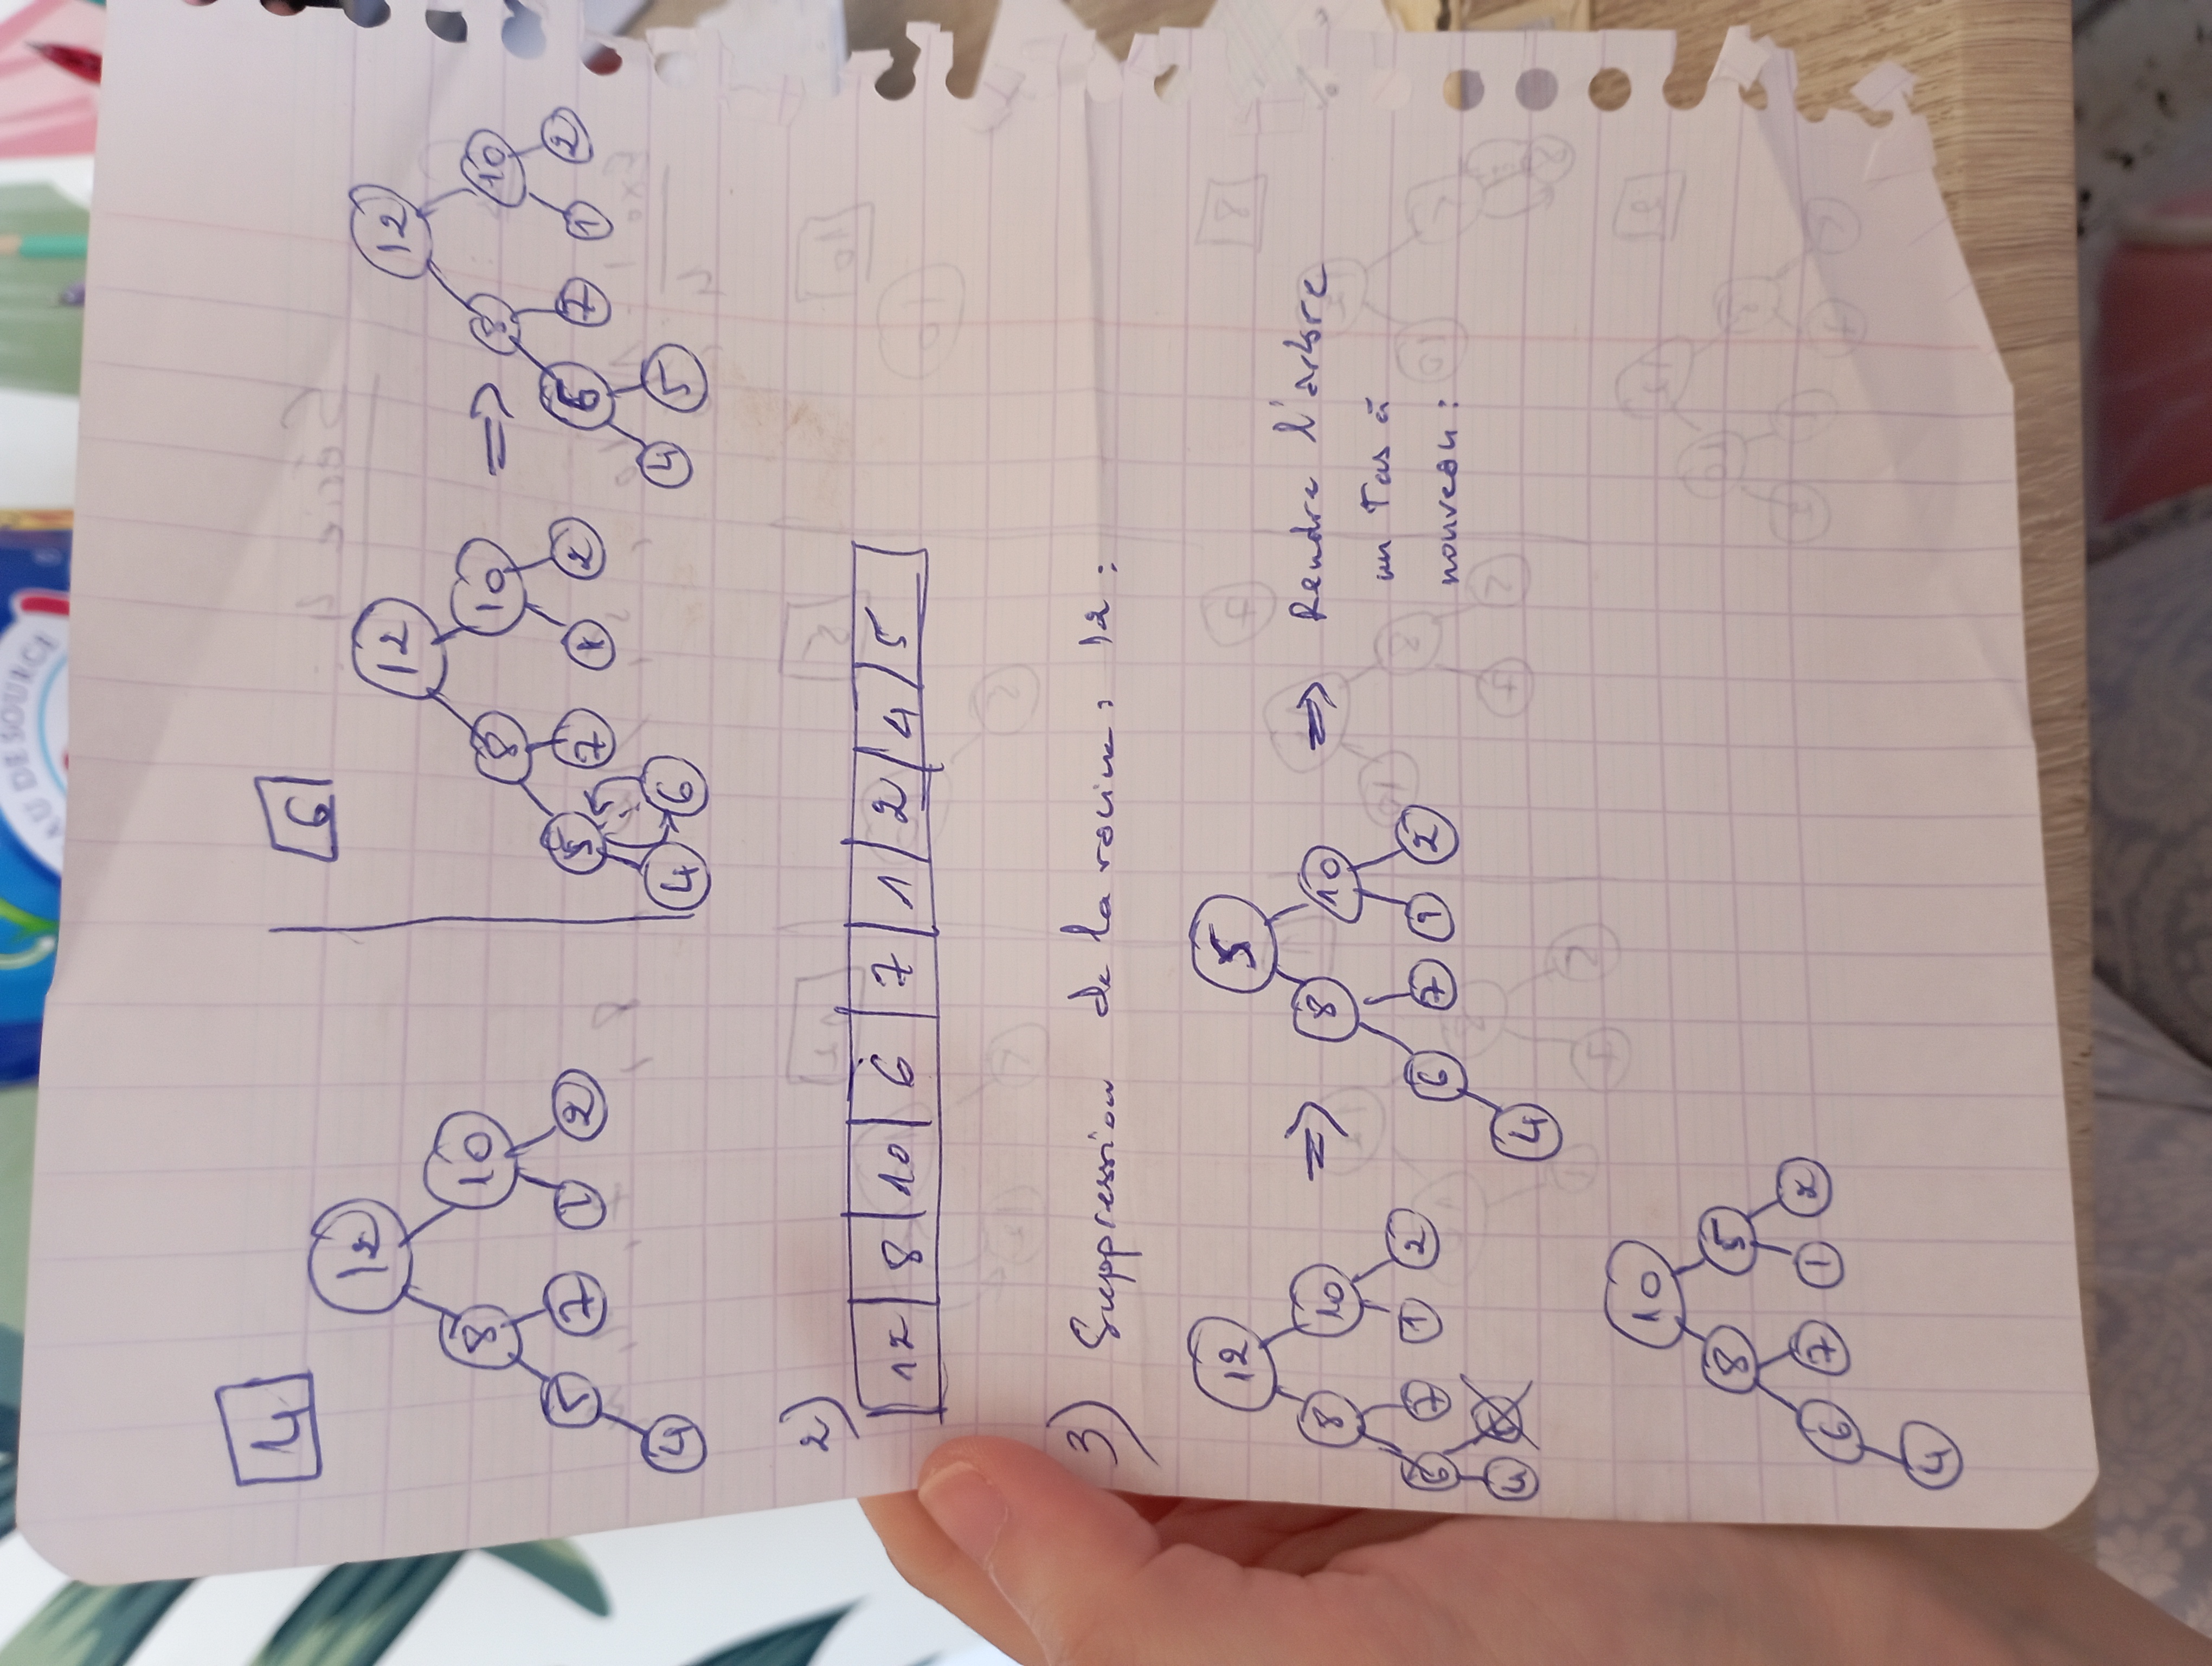 EAU DE SOURCE
4
12
8 10
5 7 1 2
4
6
12
8 10
5 7 1 2
4 6
=>
12
8 10
6 7 1 2
4 5
2)
12 8 10 6 7 1 2 4 5
3) Suppression de la racine : 12 :
12
8 10
6 7 1 2
4
=>
5
8 10
6 7 1 2
4
=> Rendre l'arbre
un Tas à
nouveau :
10
8 5
6 7 1 2
4